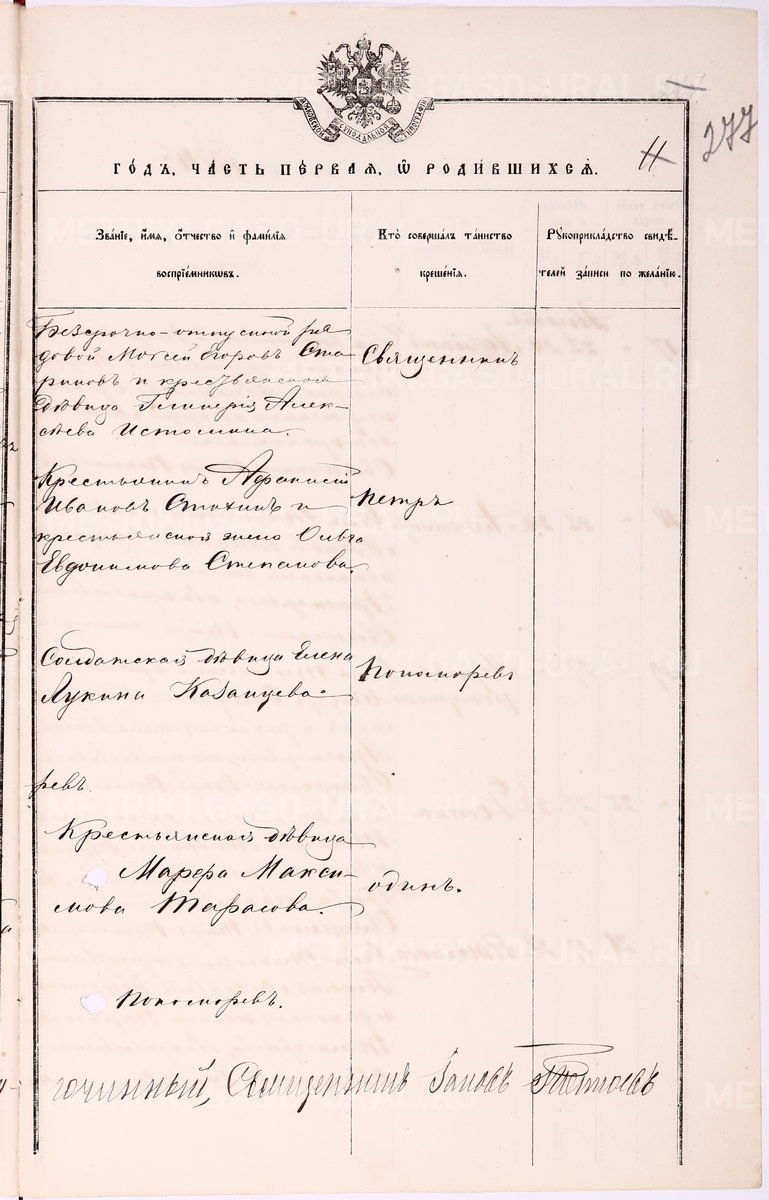 277
11
МОСКОВСКОЙ СѴНОДАЛЬНОЙ ТИПОГРАФІИ
ГО́ДЪ, ЧА́СТЬ ПЕ́РВАЯ, Ѽ РОДИ́ВШИХСЯ.
Зва́нїе, и҆́мя, ѻ҆́тчество и҆ фами́лїя
воспрїе́мникѡвъ.
Кто̀ соверша́лъ та́инство
креще́нїя.
Рꙋкоприкла́дство свидѣ́-
телей за́писи по жела́нїю.
Безсрочно-отпускной ря
довой Моисей Егоровъ Ста
риковъ и крестьянская
дѣвица Гликерія Алек-
сѣева Истомина.
Священникъ
Крестьянинъ Афанасій
Ивановъ и
крестьянская жена Ольга
Евдокимова Степанова.
Петръ
Солдатская дѣвица Елена
Лукина Казанцева
Пономаревъ
ревъ.
Крестьянская дѣвица
Марфа Макси-
мова Тарасова.
одинъ.
Пономаревъ.
гочинный, Священникъ Іаковъ